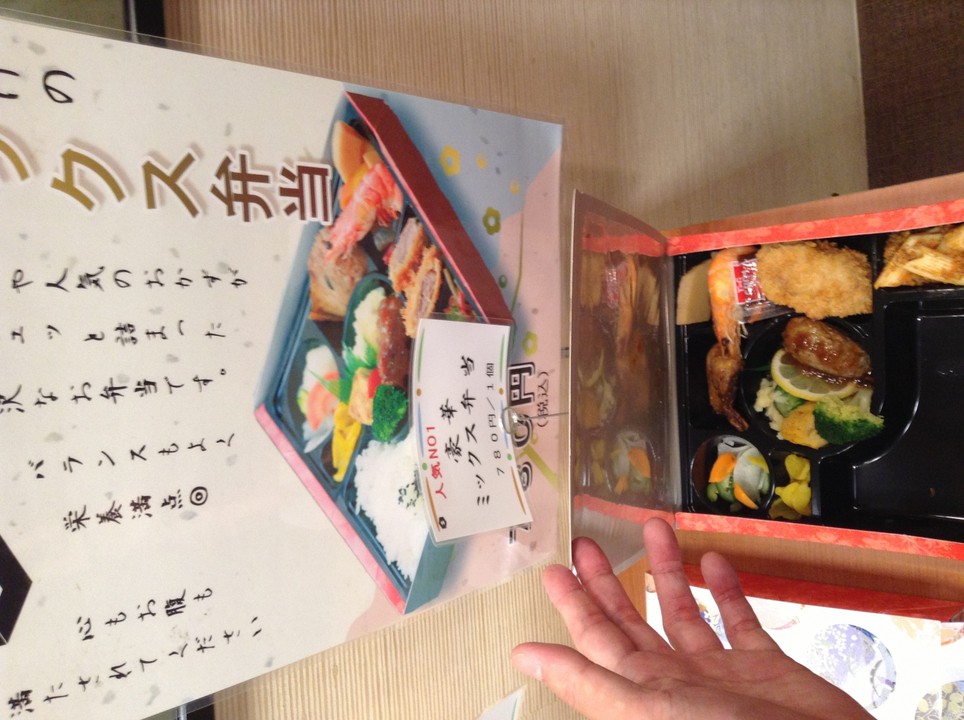 の
クス弁当
や人気のおかずが
ュッと詰まった
沢なお弁当です。
バランスもよく
栄養満点◎
心もお腹も
満たされてください
人気NO1
豪華
ミックス弁当
780円/1個
80円
(税込)